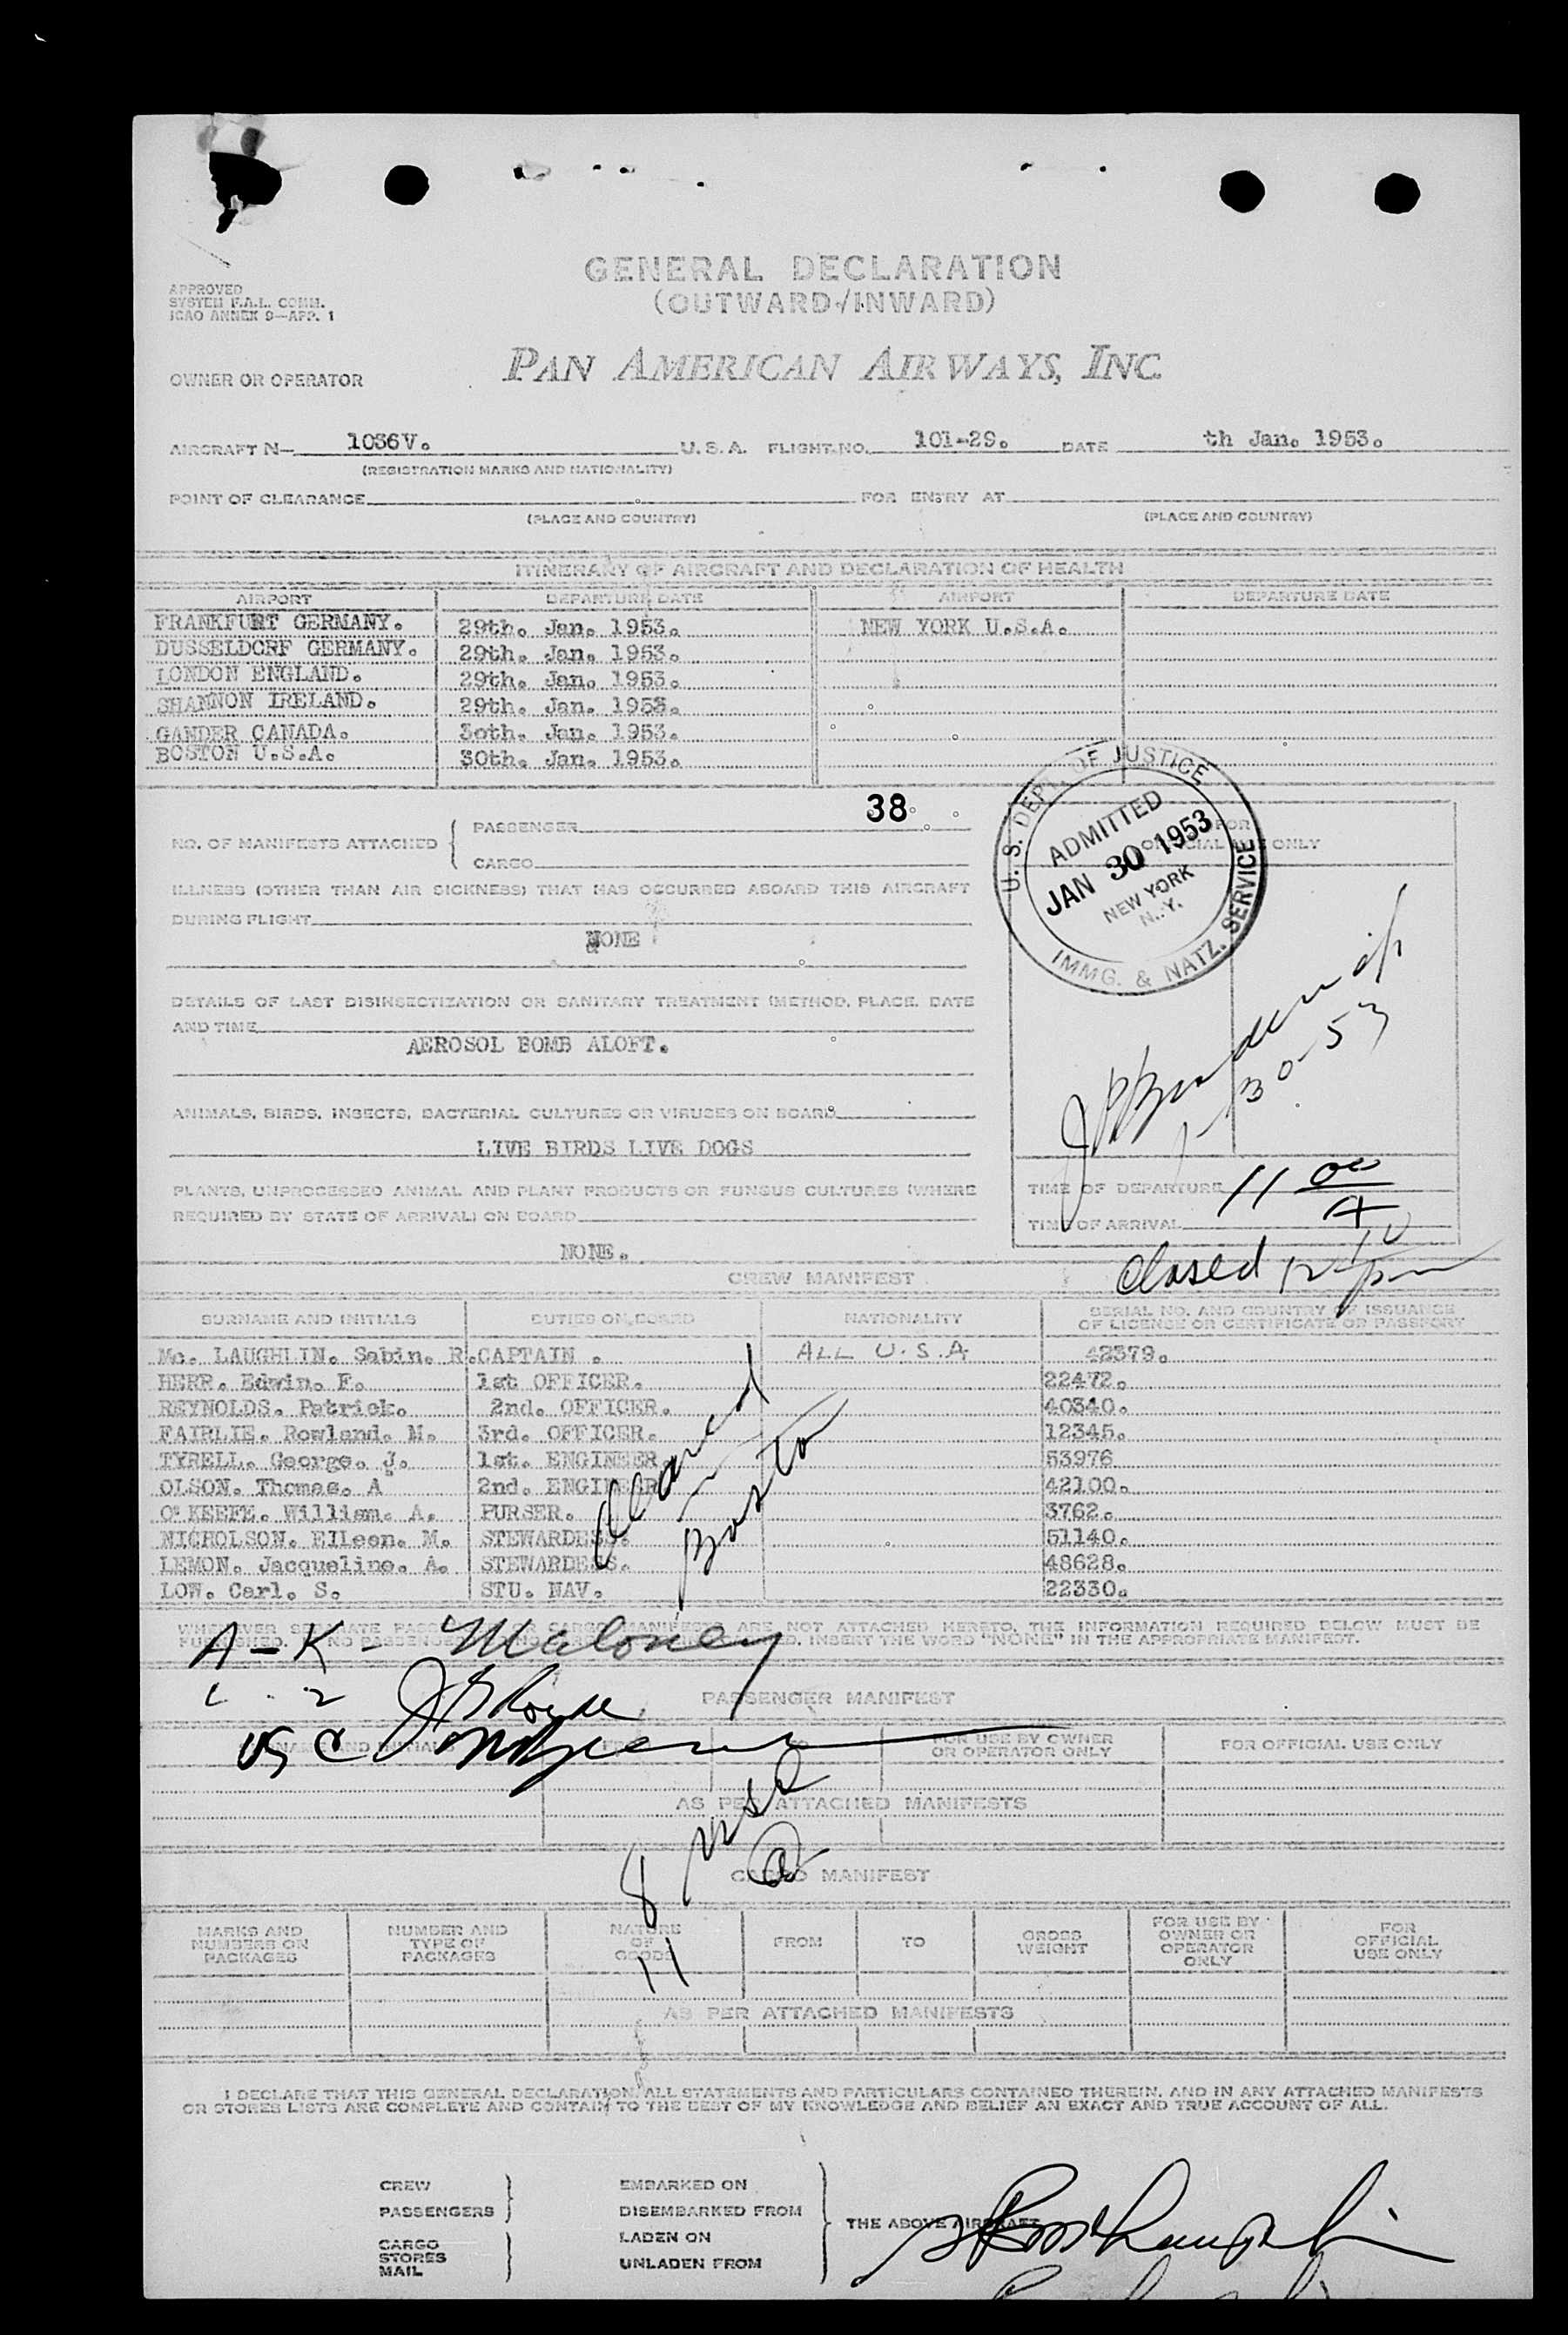 GENERAL DECLARATION
(OUTWARD/INWARD)
APPROVED
SYSTEM F.A.L. COMM.
ICAO ANNEX 9—APP. 1
OWNER OR OPERATOR
PAN AMERICAN AIRWAYS, INC.
AIRCRAFT N— 1036V. U.S.A. FLIGHT NO. 101-29. DATE th Jan. 1953.
(REGISTRATION MARKS AND NATIONALITY)
POINT OF CLEARANCE FOR ENTRY AT
(PLACE AND COUNTRY) (PLACE AND COUNTRY)
ITINERARY OF AIRCRAFT AND DECLARATION OF HEALTH
AIRPORT DEPARTURE DATE AIRPORT DEPARTURE DATE
FRANKFURT GERMANY. 29th. Jan. 1953. NEW YORK U.S.A.
DUSSELDORF GERMANY. 29th. Jan. 1953.
LONDON ENGLAND. 29th. Jan. 1953.
SHANNON IRELAND. 29th. Jan. 1953.
GANDER CANADA. 30th. Jan. 1953.
BOSTON U.S.A. 30th. Jan. 1953.
NO. OF MANIFESTS ATTACHED
PASSENGER 38
CARGO
U.S. DEPT. OF JUSTICE
ADMITTED
JAN 30 1953
NEW YORK
N.Y.
IMMG. & NATZ. SERVICE
FOR
OFFICIAL USE ONLY
ILLNESS (OTHER THAN AIR SICKNESS) THAT HAS OCCURRED ABOARD THIS AIRCRAFT
DURING FLIGHT
NONE
DETAILS OF LAST DISINSECTIZATION OR SANITARY TREATMENT (METHOD, PLACE, DATE
AND TIME
AEROSOL BOMB ALOFT.
1-30-53
ANIMALS, BIRDS, INSECTS, BACTERIAL CULTURES OR VIRUSES ON BOARD
LIVE BIRDS LIVE DOGS
PLANTS, UNPROCESSED ANIMAL AND PLANT PRODUCTS OR FUNGUS CULTURES (WHERE
REQUIRED BY STATE OF ARRIVAL) ON BOARD
NONE.
TIME OF DEPARTURE 11 00 A
TIME OF ARRIVAL
Closed 12 10 pm
CREW MANIFEST
SURNAME AND INITIALS DUTIES ON BOARD NATIONALITY SERIAL NO. AND COUNTRY OF ISSUANCE
OF LICENSE OR CERTIFICATE OR PASSPORT
Mc. LAUGHLIN. Sabin. R. CAPTAIN . ALL U.S.A 42379.
HERR. Edwin. F. 1st OFFICER. 22472.
REYNOLDS. Patrick. 2nd. OFFICER. 40340.
FAIRLIE. Rowland. M. 3rd. OFFICER. 12345.
TYRELL. George. J. 1st. ENGINEER. 53976
OLSON. Thomas. A 2nd. ENGINEER 42100.
O'KEEFE. William. A. PURSER. 3762.
NICHOLSON. EIleen. M. STEWARDESS. 51140.
LEMON. Jacqueline. A. STEWARDESS. 48628.
LOW. Carl. S. STU. NAV. 22330.
Cleared in Boston
WHENEVER SEPARATE PASSENGER OR CARGO MANIFESTS ARE NOT ATTACHED HERETO, THE INFORMATION REQUIRED BELOW MUST BE
INSERT THE WORD "NONE" IN THE APPROPRIATE MANIFEST.
A-K - Maloney
PASSENGER MANIFEST
USC
NAME AND INITIALS FOR USE BY OWNER
OR OPERATOR ONLY FOR OFFICIAL USE ONLY
AS PER ATTACHED MANIFESTS
8
CARGO MANIFEST
MARKS AND
NUMBERS ON
PACKAGES
NUMBER AND
TYPE OF
PACKAGES
NATURE
OF
GOODS
FROM
TO
GROSS
WEIGHT
FOR USE BY
OWNER OR
OPERATOR
ONLY
FOR
OFFICIAL
USE ONLY
11
AS PER ATTACHED MANIFESTS
I DECLARE THAT THIS GENERAL DECLARATION, ALL STATEMENTS AND PARTICULARS CONTAINED THEREIN, AND IN ANY ATTACHED MANIFESTS
OR STORES LISTS ARE COMPLETE AND CONTAIN TO THE BEST OF MY KNOWLEDGE AND BELIEF AN EXACT AND TRUE ACCOUNT OF ALL.
CREW
PASSENGERS
CARGO
STORES
MAIL
EMBARKED ON
DISEMBARKED FROM
LADEN ON
UNLADEN FROM
THE ABOVE AIRCRAFT
S R McLaughlin